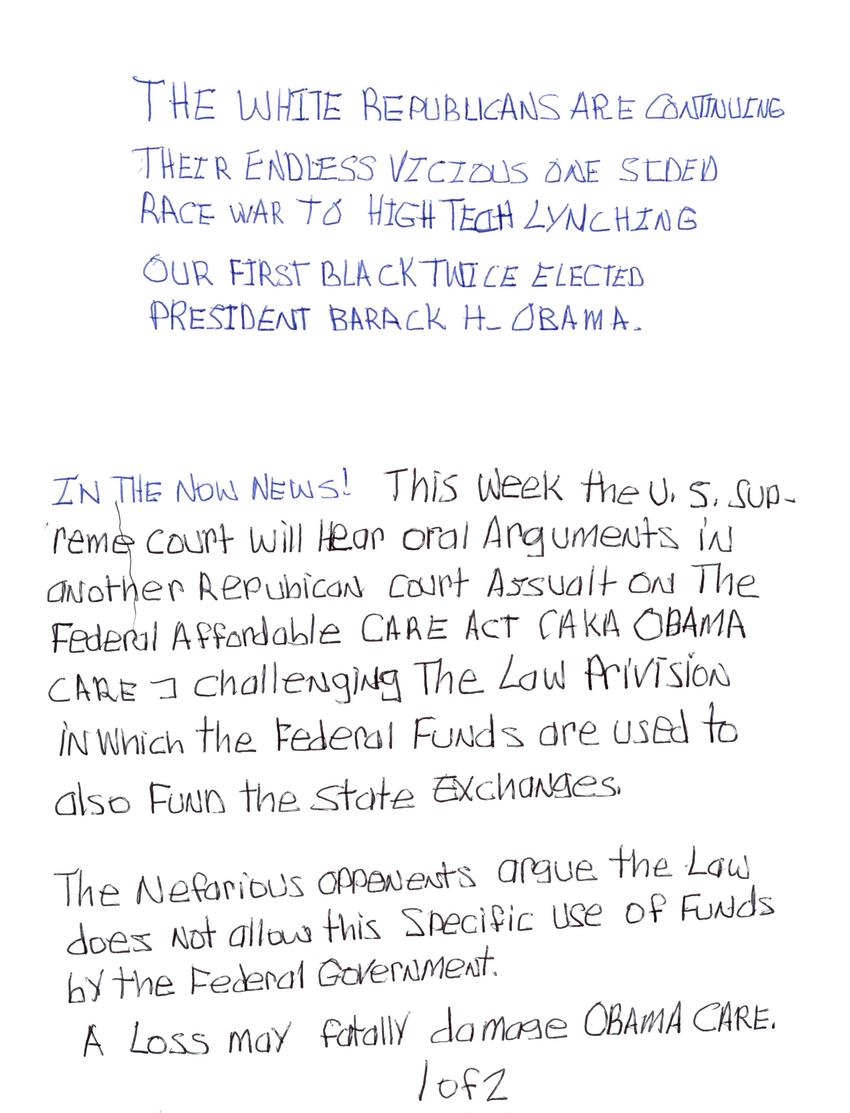 THE WHITE REPUBLICANS ARE CONTINUING
THEIR ENDLESS VICIOUS ONE SIDED
RACE WAR TO HIGH TECH LYNCHING
OUR FIRST BLACK TWICE ELECTED
PRESIDENT BARACK H. OBAMA.
IN THE NOW NEWS! This Week the U.S. Sup-
reme court will Hear oral Arguments in
another Repubican court Assualt on The
Federal Affordable CARE ACT (AKA OBAMA
CARE ] challenging The Law Privision
in Which the Federal Funds are used to
also Funn the State Exchanges.
The Nefarious opponents argue the Law
does Not allow this Specific use of Funds
by the Federal Government.
A Loss may fatally damage OBAMA CARE.
1 of 2